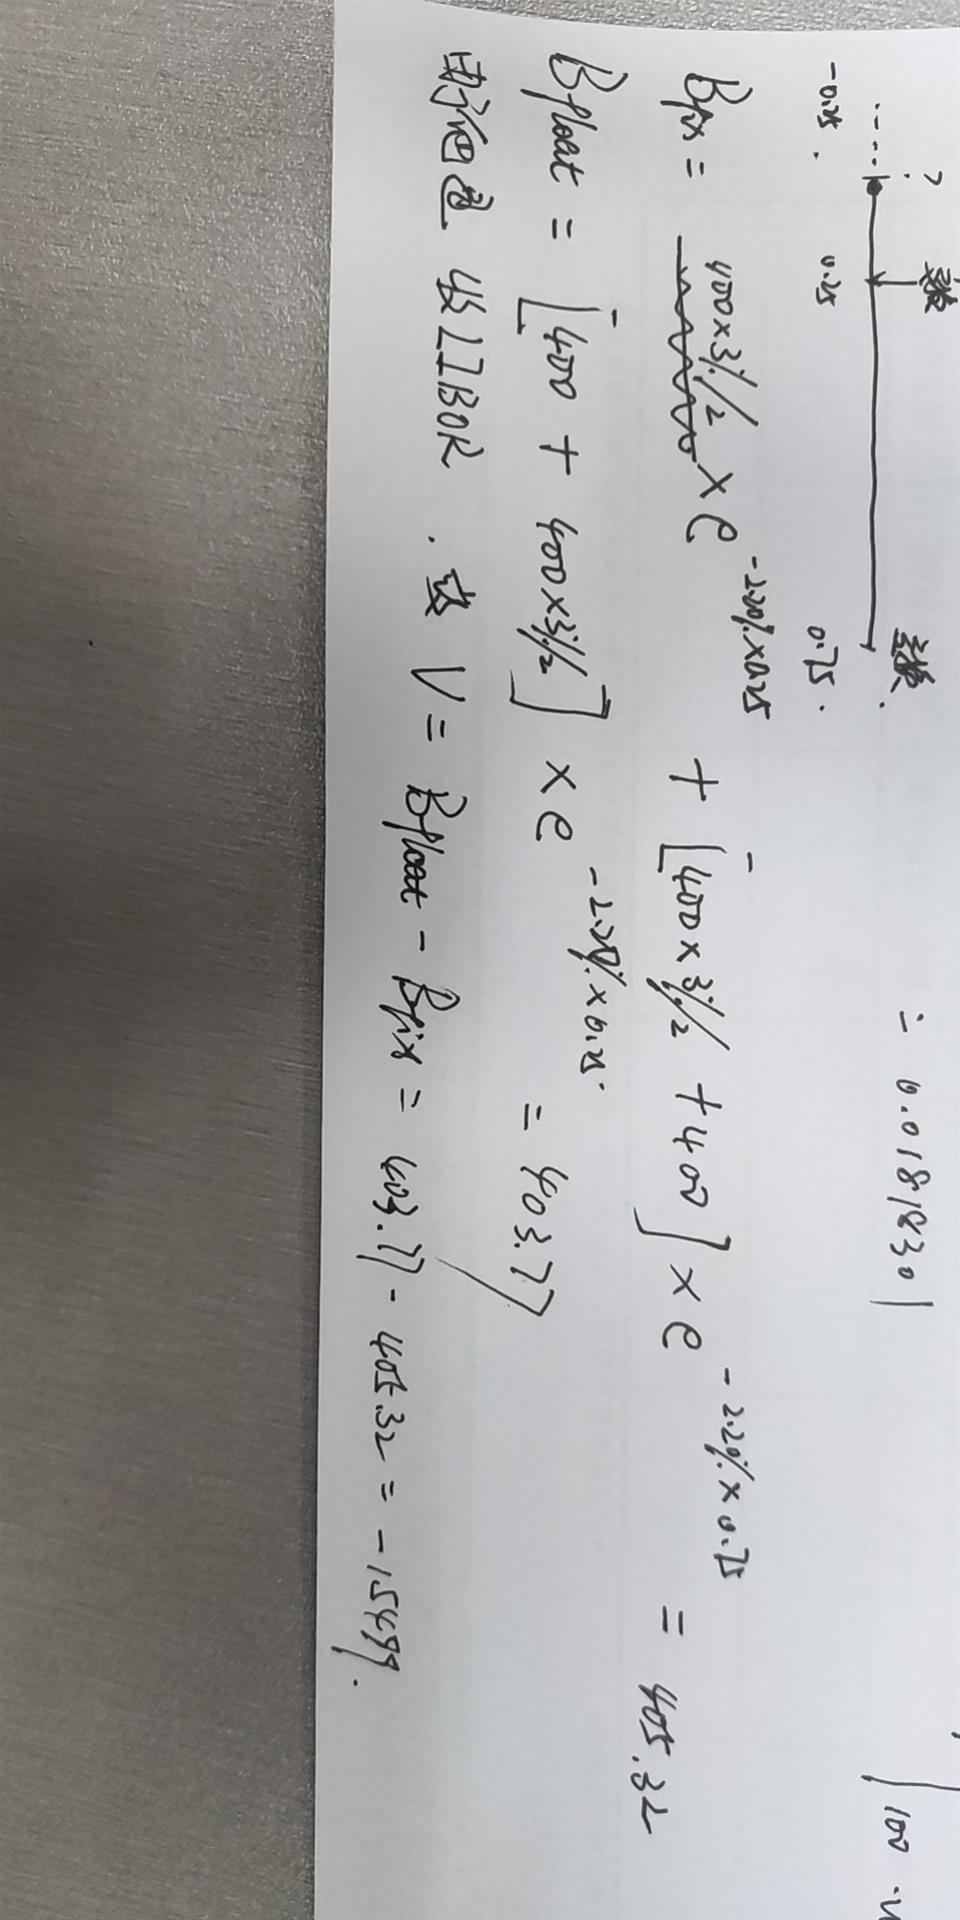 = 0.0181830
100
交换
交换
-0.25
0.25
0.75
Bfix = 400×3%/2 × e^{-2.20%×0.25} + [400×3%/2 + 400] × e^{-2.20%×0.75} = 405.32
Bfloat = [400 + 400×3%/2] × e^{-2.20%×0.25} = 403.77
收LIBOR. V = Bfloat - Bfix = 403.77 - 405.32 = -1.5499.